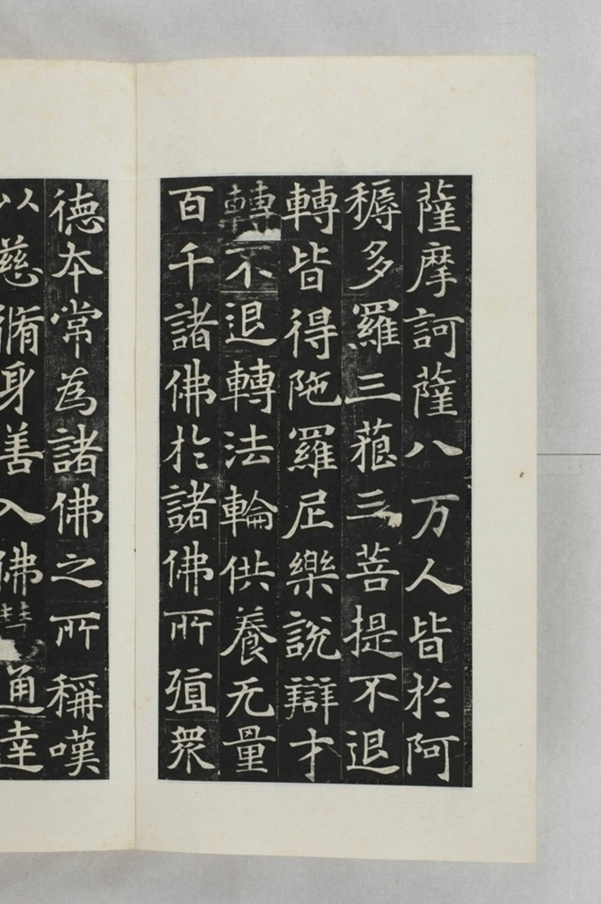 薩摩訶薩八万人皆於阿
耨多羅三藐三菩提不退
轉皆得陁羅尼樂說辯才
轉不退轉法輪供養无量
百千諸佛於諸佛所殖衆
德本常為諸佛之所稱嘆
以慈脩身善入佛慧通達